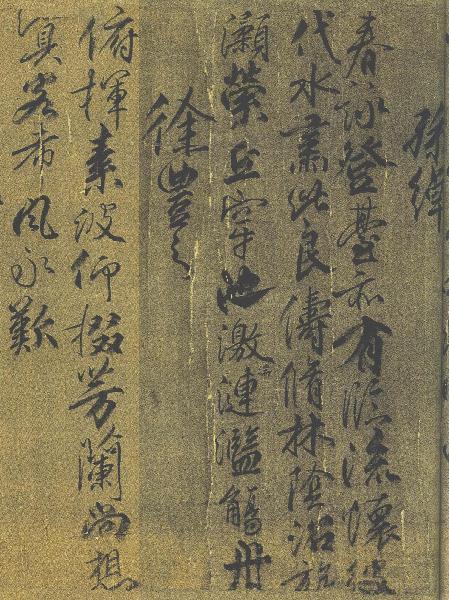 孫綽
春詠登臺亦有臨流懷彼
代水肅此良儔脩林陰沼旋
瀨縈丘穿池激漣濫觴舟
徐豐之
俯揮素波仰掇芳蘭尚想
冥客希風永歎